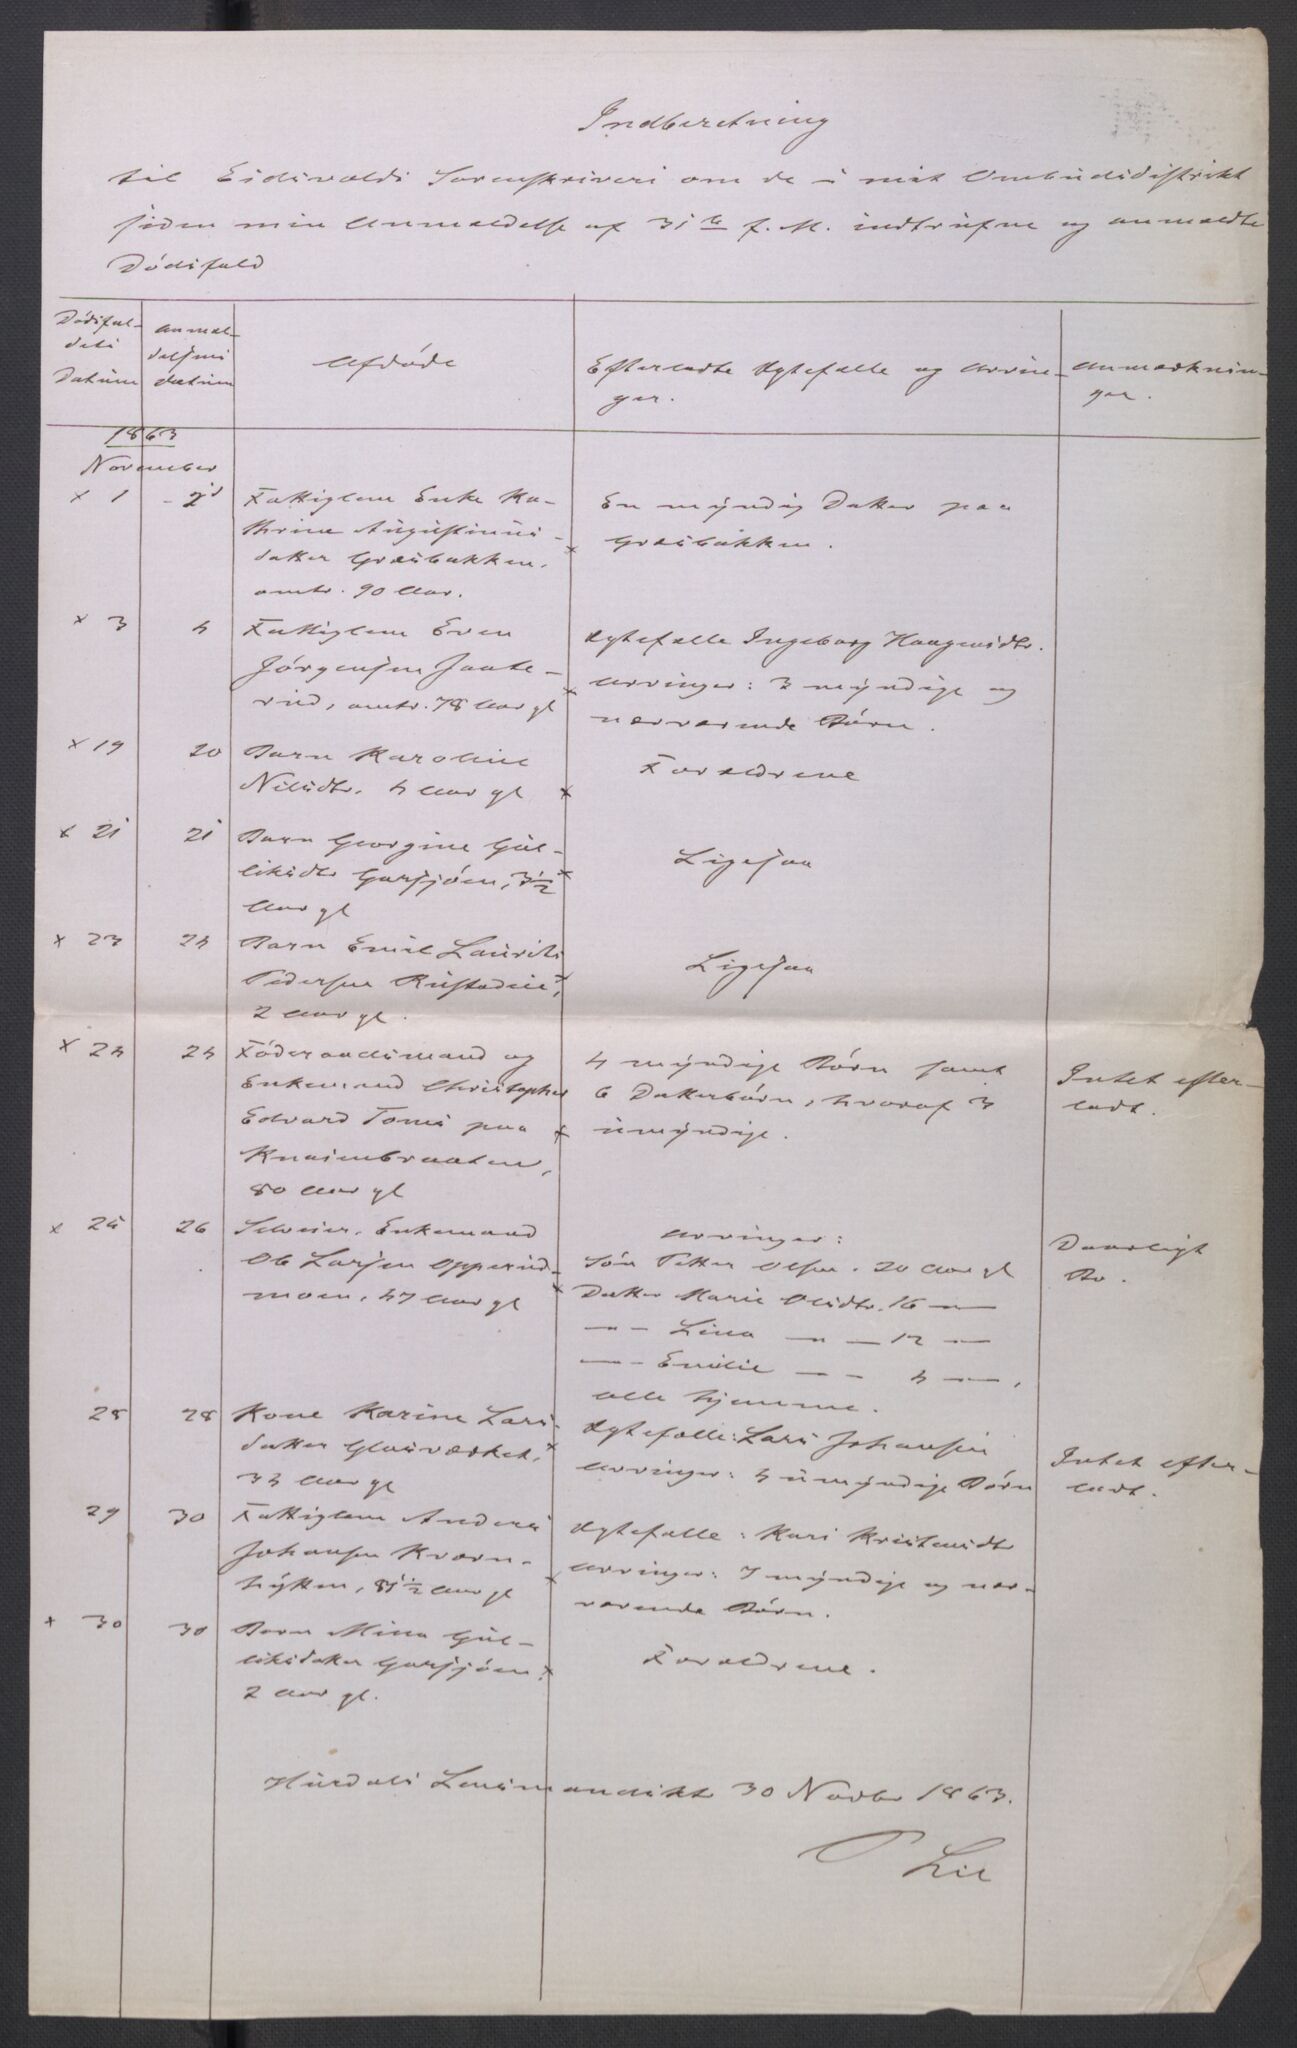 Indberetning
til Eidsvolds Sorenskriveri om de i mit Ombudsdistrikt
siden min Anmeldelse af 31te f. M. indtrufne og anmeldte
Dödsfald
Dödsfal-
dets
Datum
Anmel-
delsens
datum
Afdöde
Efterladte Ægtefælle og Arvin-
ger.
Anmærknin-
ger.
1863
November
x 1 - 2d Fattiglem Enke Ka-
thrine Augustinus-
datter Græsbakken,
omtr. 90 Aar. x
En myndig Datter paa
Græsbakken.
x 3 4 Fattiglem Even
Jörgensen Jonte-
rud, omtr. 78 Aar gl x
Ægtefælle Ingeborg Haagensdtr.
Arvinger: 3 myndige og
nærværende Börn.
x 19 20 Barn Karoline
Nilsdtr. 4 Aar gl x
Forældrene
x 21 21 Barn Georgine Gul-
liksdtr Garsjöen, 3 1/2 x
Aar gl
Ligesaa
x 23 24 Barn Emil Laurits
Pedersen Rustadeie, x
2 Aar gl.
Ligesaa
x 24 24 Föderaadsmand og
Enkemand Christopher
Edvard Toms paa x
Knaimbraaten,
80 Aar gl
4 myndige Börn samt
6 Datterbörn, hvoraf 3
umyndige.
Intet efter-
ladt.
x 25 26 Selveier, Enkemand
Ole Larsen Opperud-
moen, 47 Aar gl x
Arvinger:
Sön Petter Olsen. 20 Aar gl
Datter Marie Olsdtr. 16 — —
— - Lina — " — 12 —
— - Emilie — - 4 — ,
alle hjemme.
Daarligt
Bo.
28 28 Kone Karine Lars-
datter Glasværket, x
34 Aar gl
Ægtefælle: Lars Johansen
Arvinger: 4 umyndige Börn
Intet efter-
ladt.
29 30 Fattiglem Anders
Johansen Kværn-
hytten, 81 1/2 Aar gl x
Ægtefælle: Kari Kristensdtr
Arvinger: 7 myndige og nær-
værende Börn.
x 30 30 Barn Mina Gul-
liksdatter Garsjöen, x
2 Aar gl.
Forældrene.
Hurdals Lensmandskt 30 Novbr 1863.
P Lie